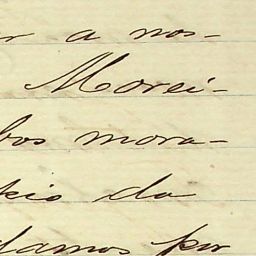 r a nos-
Morei-
bos mora-
pio do
damos por